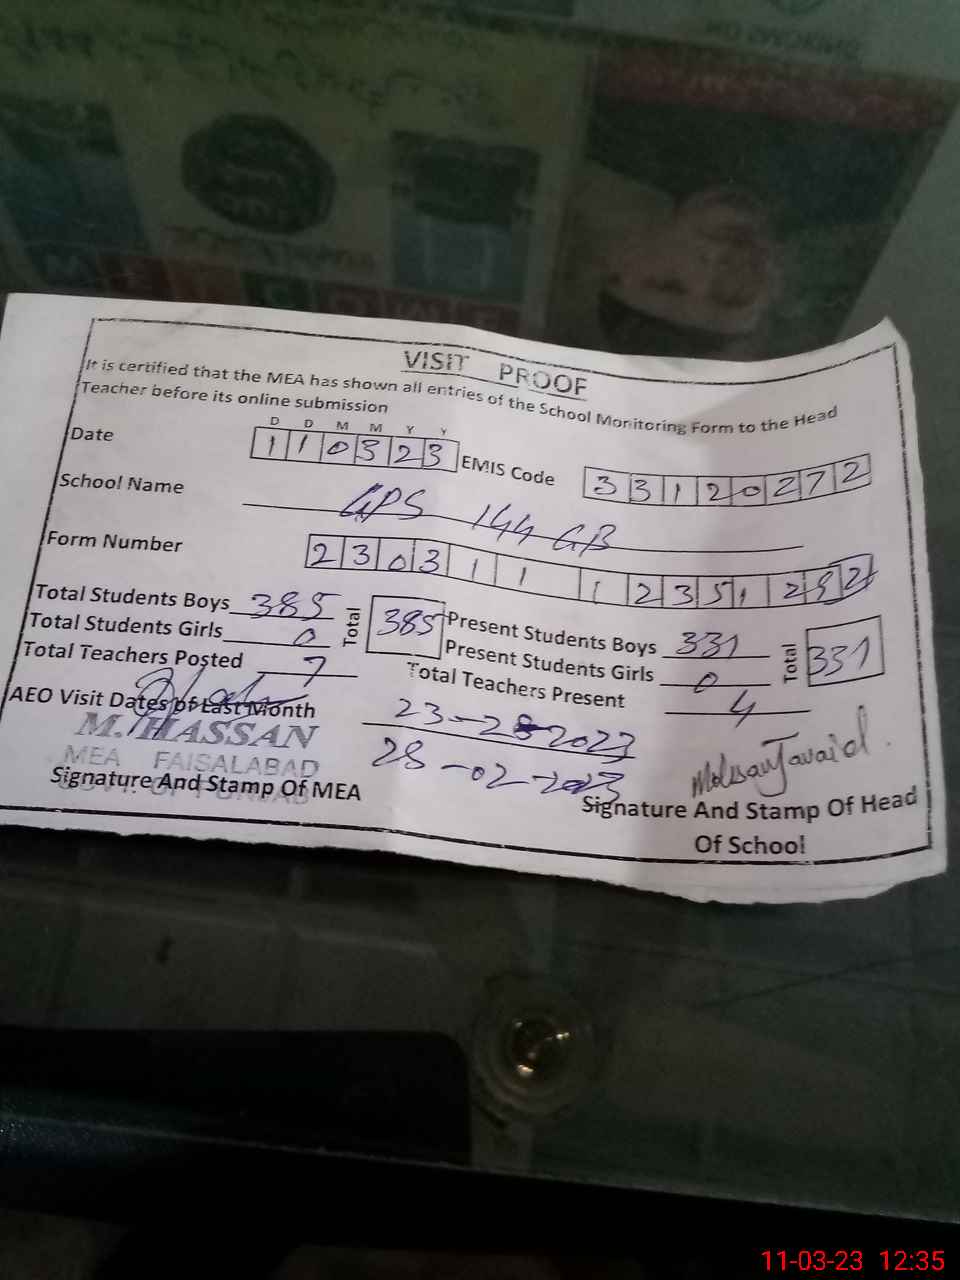 VISIT PROOF
It is certified that the MEA has shown all entries of the School Monitoring Form to the Head
Teacher before its online submission
D D M M Y Y
Date 1 1 0 3 2 3 EMIS Code 3 3 1 2 0 2 7 2
School Name GPS 144 GB
Form Number 2 3 0 3 1 1 1 2 3 5 1 2 5 2
Total Students Boys 385 Total 385 Present Students Boys 331 Total 331
Total Students Girls 0 Present Students Girls 0
Total Teachers Posted 7 Total Teachers Present 4
AEO Visit Dates of Last Month 23-2-2023
28-02-2023
M. HASSAN
MEA FAISALABAD
GOVT. OF PUNJAB
Signature And Stamp Of MEA
Signature And Stamp Of Head
Of School
11-03-23 12:35